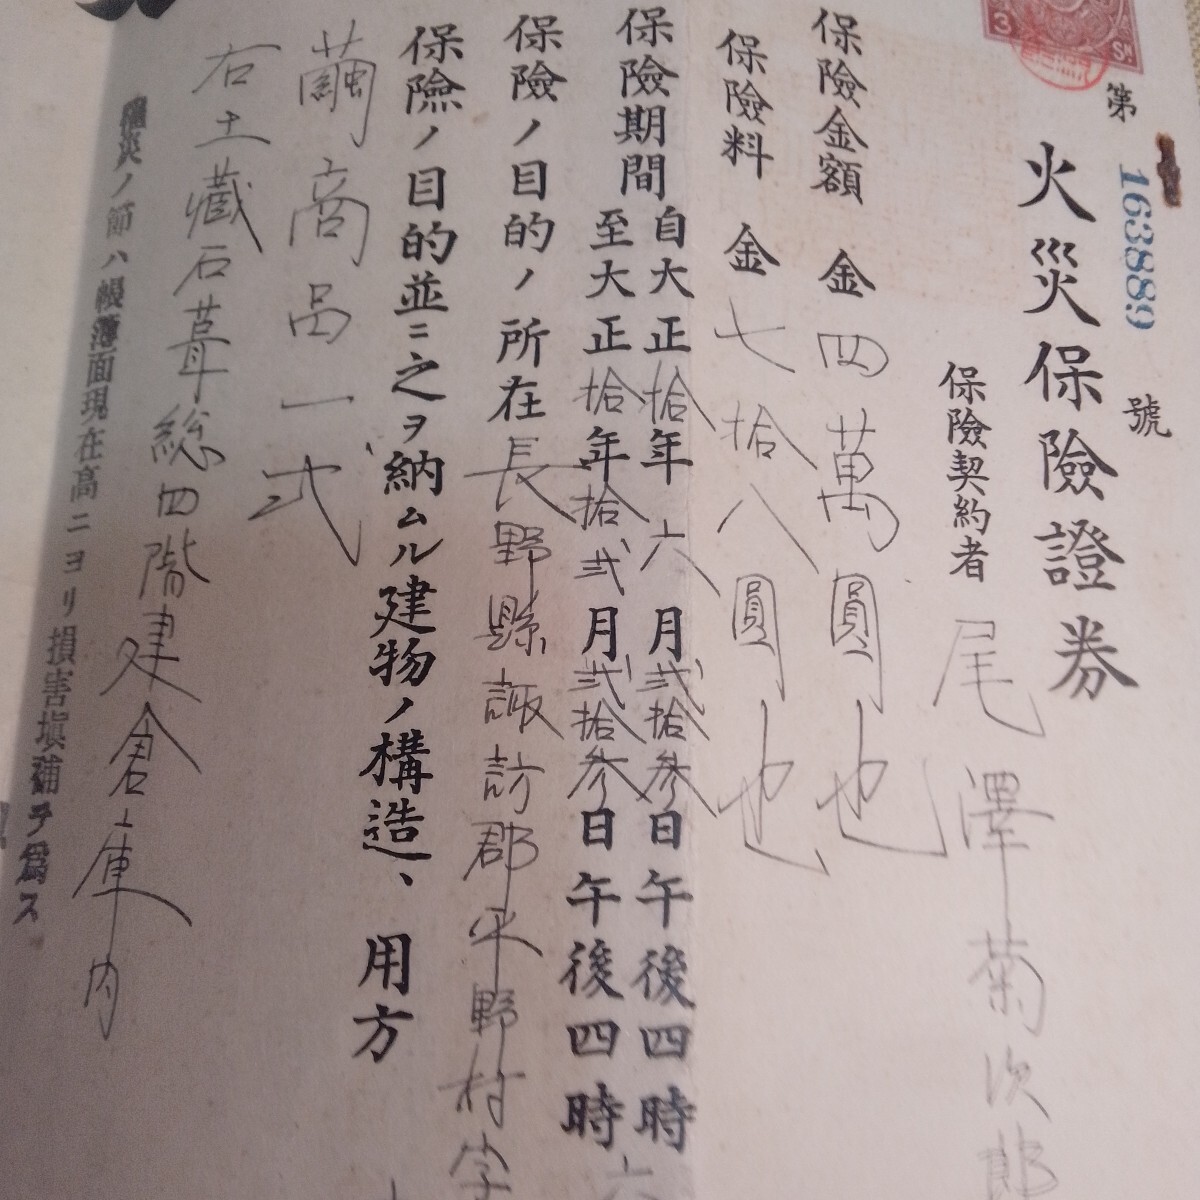 第163889號
火災保險證券
保險契約者 尾澤菊次郎
保險金額 金四萬圓也
保險料 金七拾八圓也
保險期間 自大正拾年六月弐拾参日午後四時
至大正拾年拾弐月弐拾参日午後四時
保險ノ目的ノ所在 長野縣諏訪郡平野村字
保險ノ目的並ニ之ヲ納ムル建物ノ構造、用方
繭商品一式
右土藏石葺総四階建倉庫内
罹災ノ節ハ帳簿面現在高ニヨリ損害塡補ヲ為ス
3
Sn.